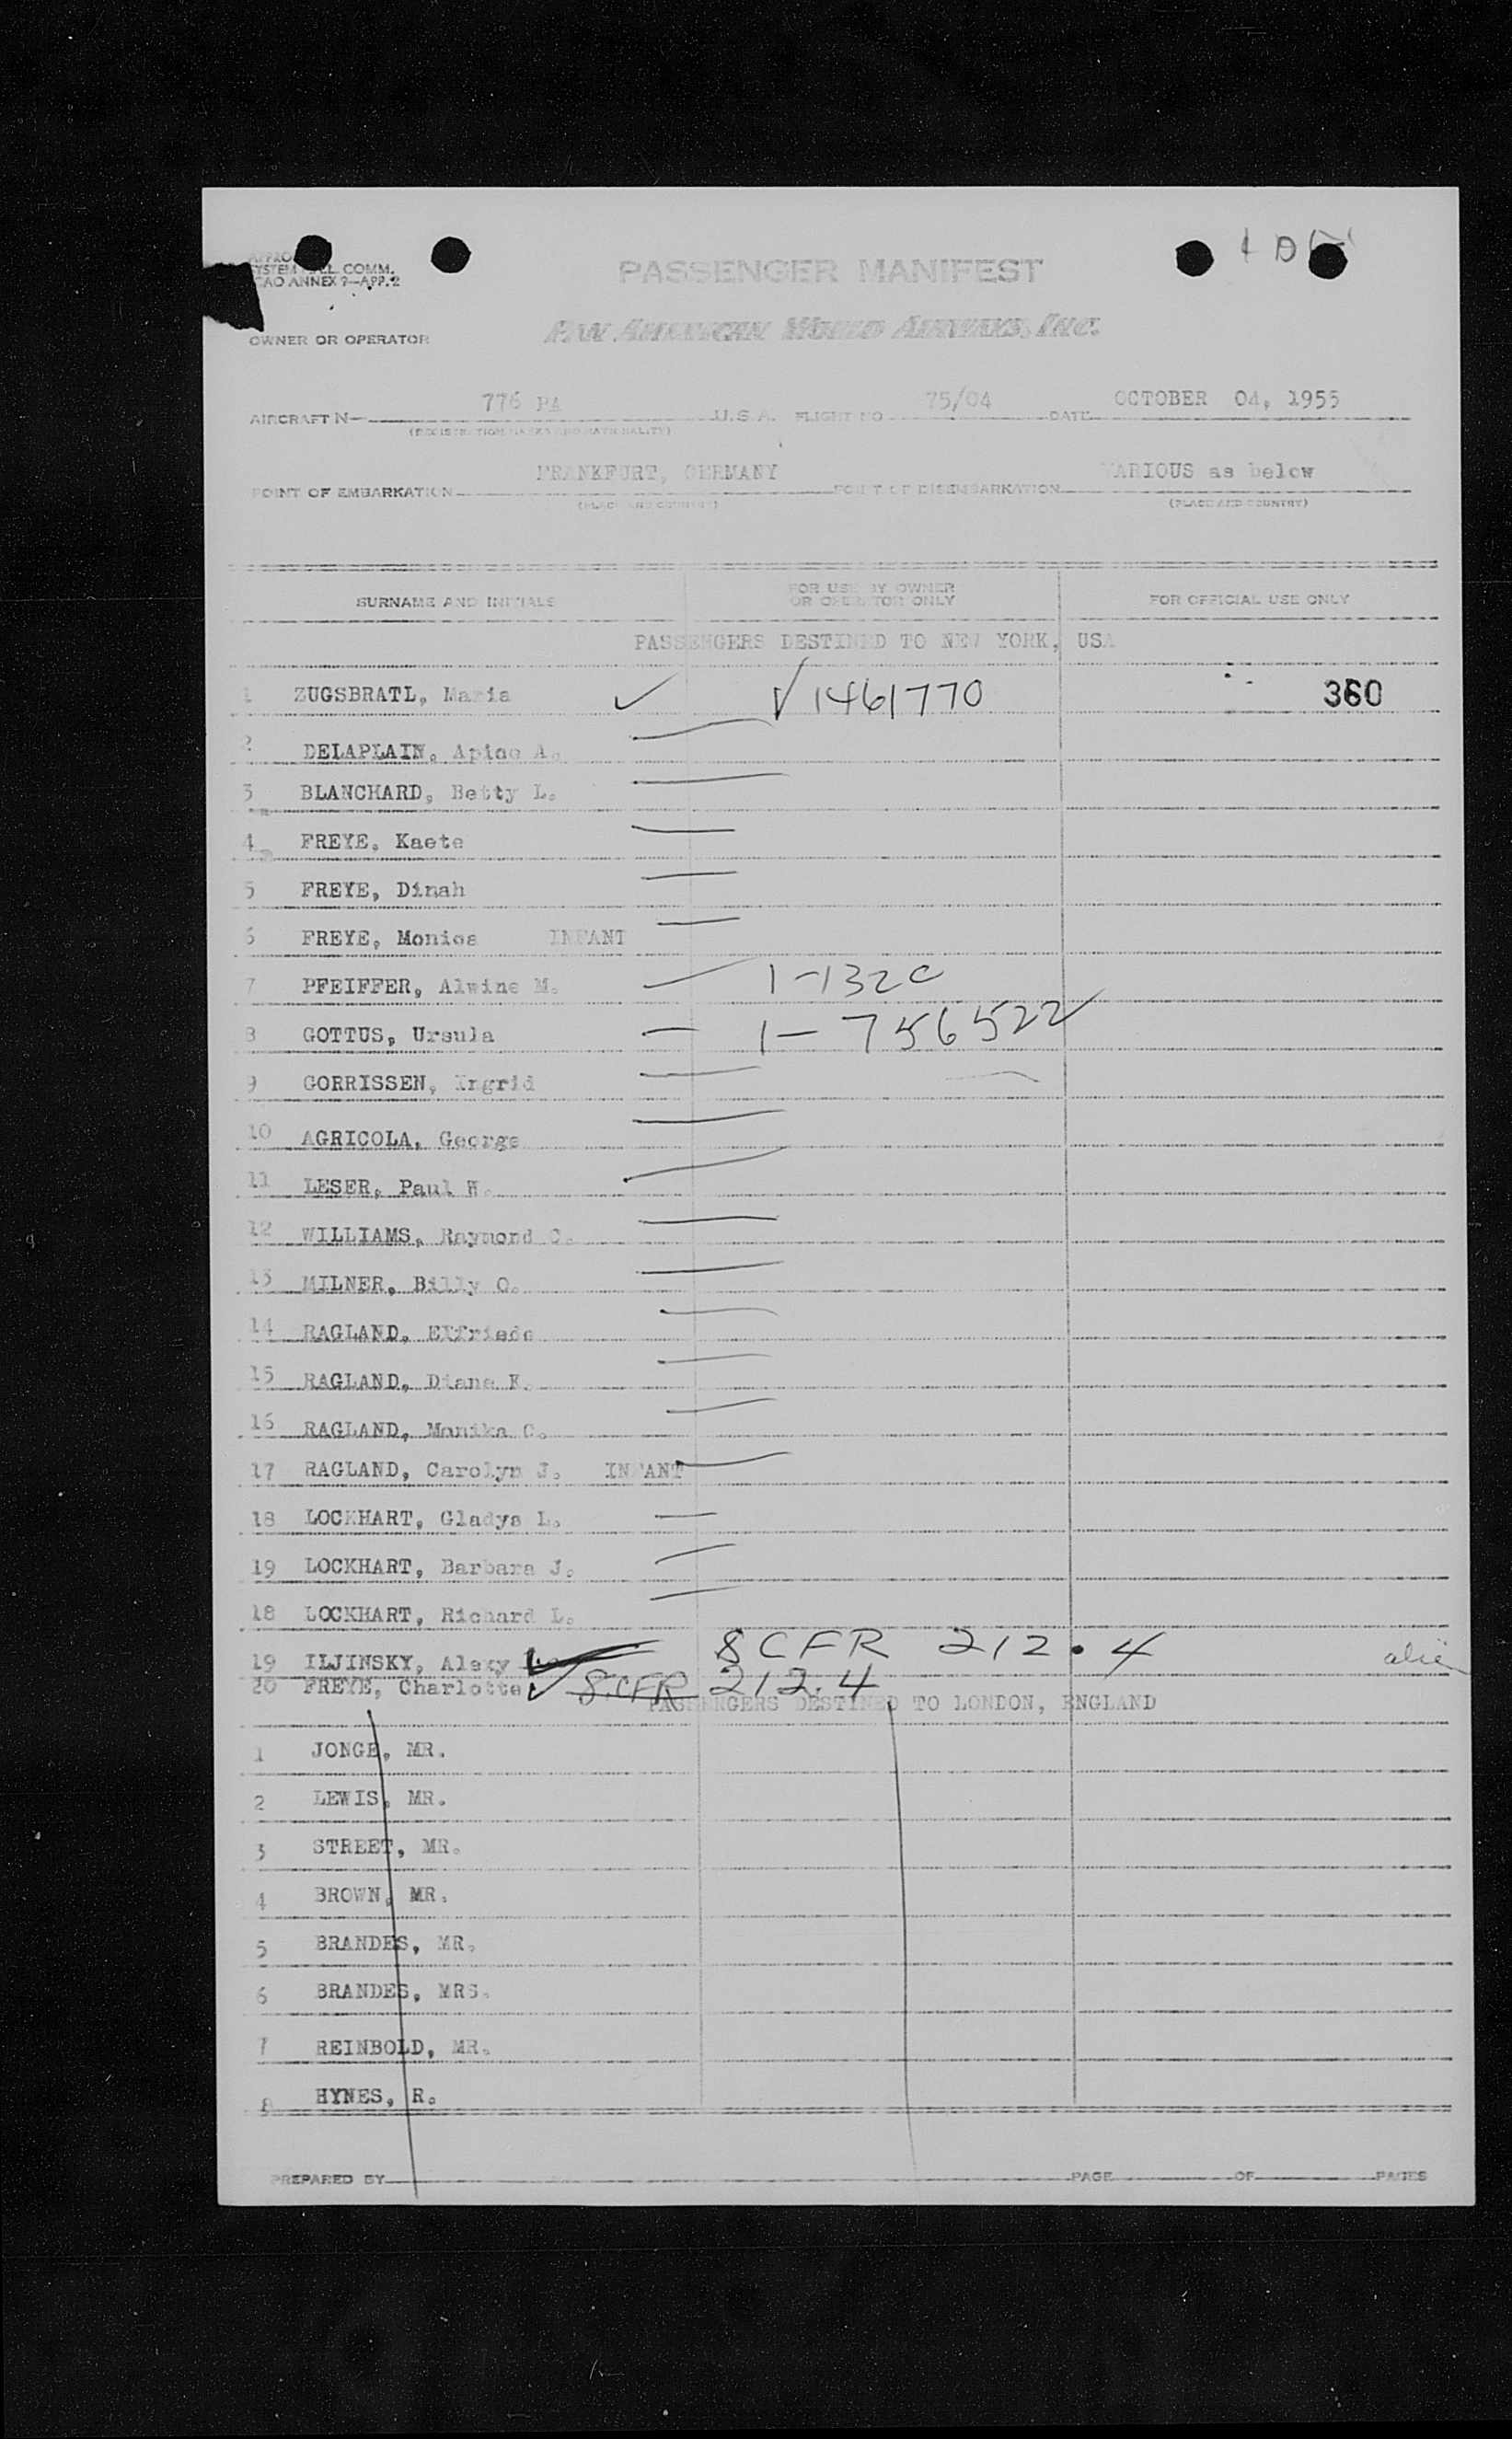 SYSTEM COMM.
ANNEX 9—APP. 2
PASSENGER MANIFEST
OWNER OR OPERATOR
PAN AMERICAN WORLD AIRWAYS, INC.
AIRCRAFT N— 776 PA U.S.A. FLIGHT NO 75/04 DATE OCTOBER 04, 1955
(REGISTRATION MARKS AND NATIONALITY)
POINT OF EMBARKATION FRANKFURT, GERMANY POINT OF DISEMBARKATION VARIOUS as below
(PLACE AND COUNTRY) (PLACE AND COUNTRY)
SURNAME AND INITIALS FOR USE BY OWNER OR OPERATOR ONLY FOR OFFICIAL USE ONLY
PASSENGERS DESTINED TO NEW YORK, USA
1 ZUGSBRATL, Maria ✓ ✓ 1461770 360
2 DELAPLAIN, A.
3 BLANCHARD, Betty L.
4 FREYE, Kaete
5 FREYE, Dinah
6 FREYE, Monica INFANT
7 PFEIFFER, Alwine M. 1-132c
8 GOTTUS, Ursula 1-756522
9 GORRISSEN, Ingrid
10 AGRICOLA, George
11 LESER, Paul W.
12 WILLIAMS, Raymond C.
13 MILNER, Billy O.
14 RAGLAND, Elfriede
15 RAGLAND, Diane K.
16 RAGLAND, Monika C.
17 RAGLAND, Carolyn J. INFANT
18 LOCKHART, Gladys L.
19 LOCKHART, Barbara J.
18 LOCKHART, Richard L.
19 ILJINSKY, Alexy 8 CFR 212.4
20 FREYE, Charlotte ✓ 8 CFR 212.4
PASSENGERS DESTINED TO LONDON, ENGLAND
1 JONGE, MR.
2 LEWIS, MR.
3 STREET, MR.
4 BROWN, MR.
5 BRANDES, MR.
6 BRANDES, MRS.
7 REINBOLD, MR.
8 HYNES, R.
PREPARED BY PAGE OF PAGES